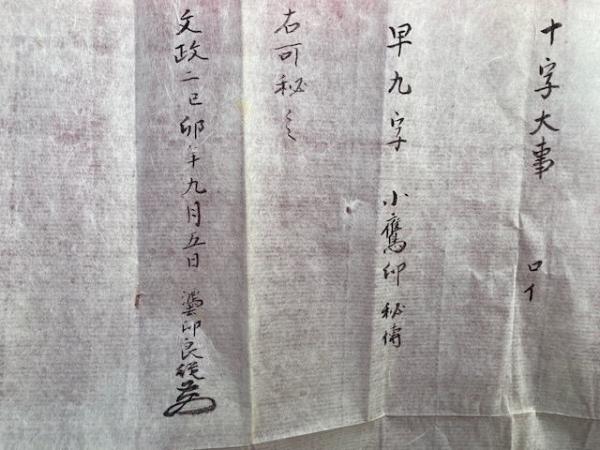 十字大事 口イ
早九字 小鷹印 秘傳
右可秘〻
文政二己卯年九月五日 印良